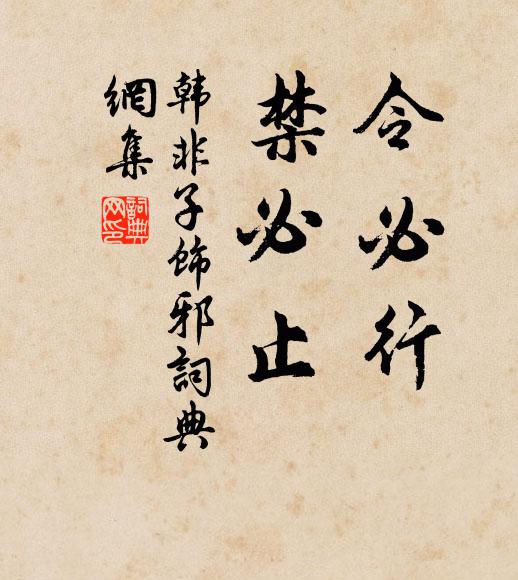 令必行
禁必止
韩非子飾邪詞典
網集
詞典
网印